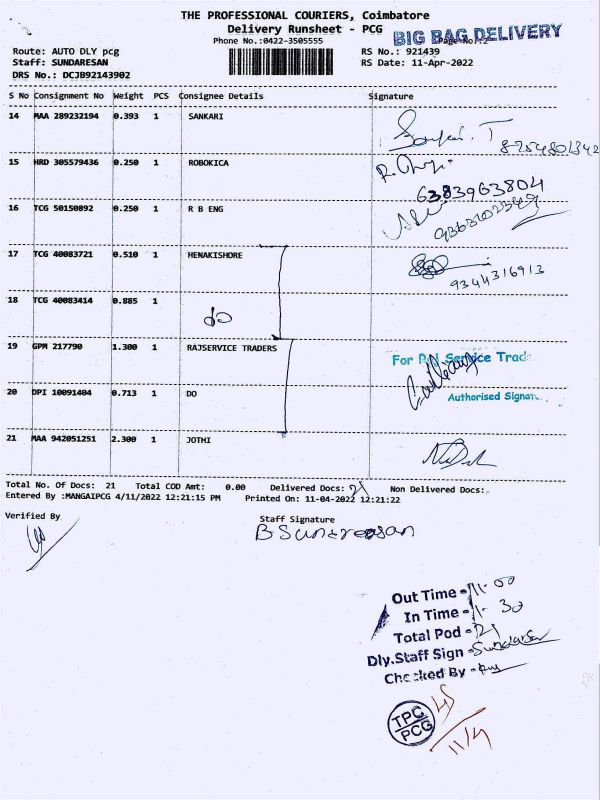 THE PROFESSIONAL COURIERS, Coimbatore
Delivery Runsheet - PCG
BIG BAG DELIVERY
Phone No.:0422-3505555
Page No.:2
Route: AUTO DLY pcg
RS No.: 921439
Staff: SUNDARESAN
RS Date: 11-Apr-2022
DRS No.: DCJB92143902
S No Consignment No Weight PCS Consignee Details Signature
14 MAA 289232194 0.393 1 SANKARI
15 HRD 305579436 0.250 1 ROBOKICA
6383963804
16 TCG 50150892 0.250 1 R B ENG
17 TCG 40083721 0.510 1 HENAKISHORE
9344316913
18 TCG 40083414 0.885 1 do
19 GPM 217790 1.300 1 RAJSERVICE TRADERS
For Raj Service Trad
20 DPI 10091404 0.713 1 DO
Authorised Signat
21 MAA 942051251 2.300 1 JOTHI
Total No. Of Docs: 21 Total COD Amt: 0.00 Delivered Docs: 21 Non Delivered Docs:
Entered By :MANGAIPCG 4/11/2022 12:21:15 PM Printed On: 11-04-2022 12:21:22
Verified By
Staff Signature
B Sundreasan
Out Time - 11.00
In Time - 1.30
Total Pod - 21
Dly.Staff Sign -
Checked By -
TPC
PCG
11/4